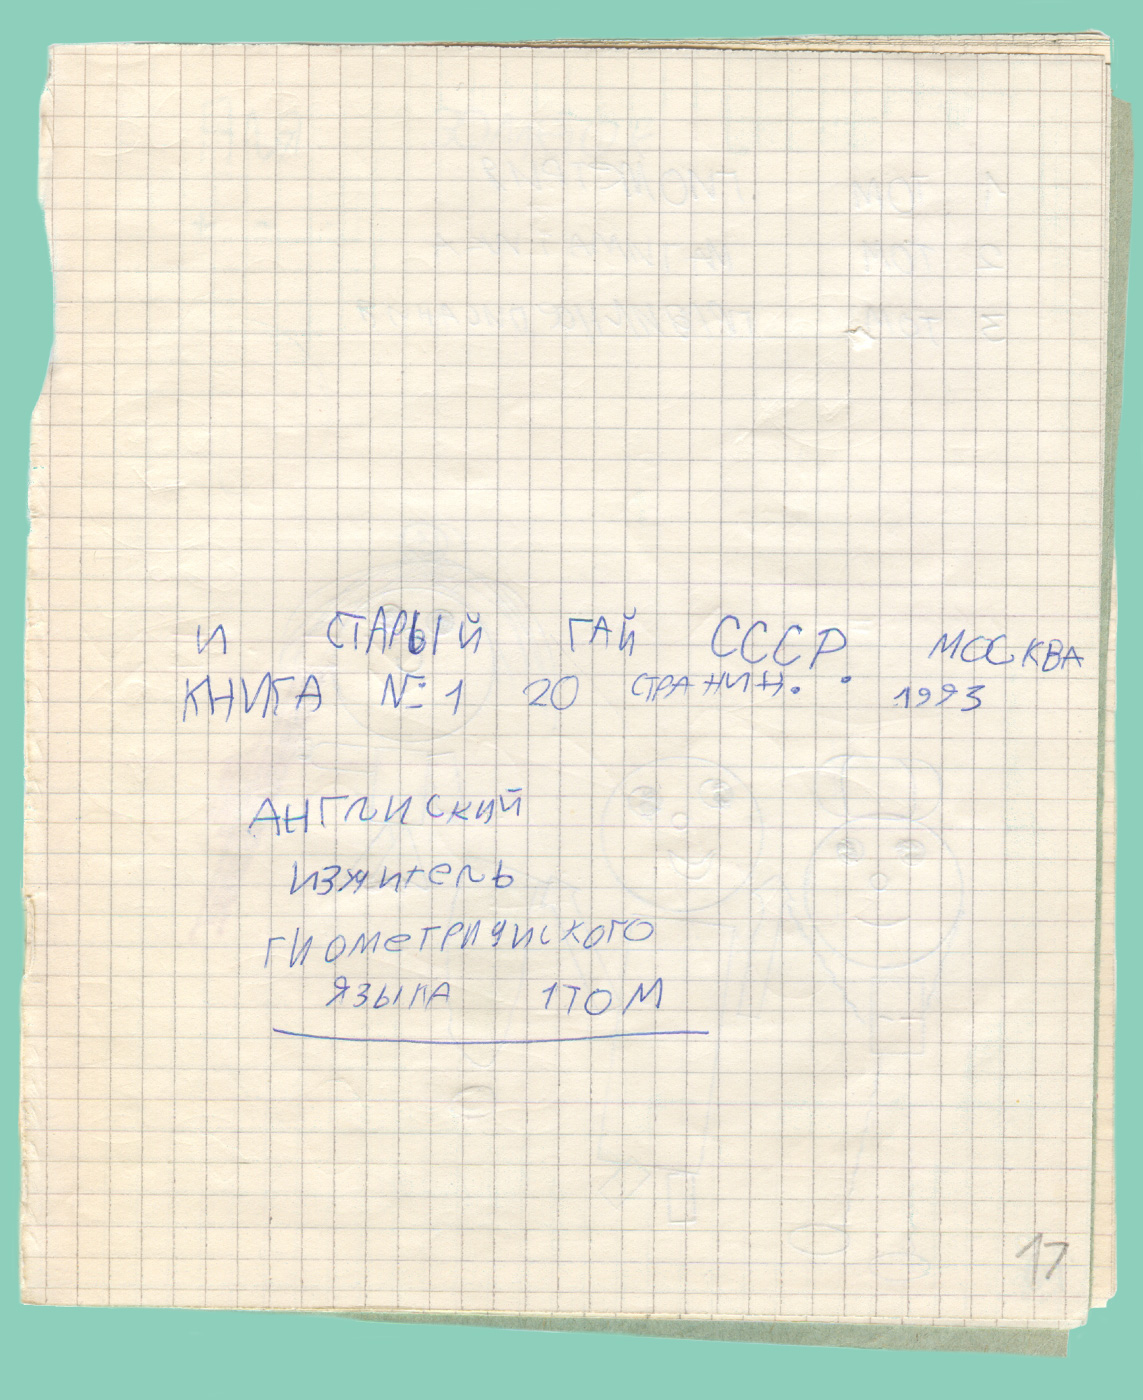 И СТАРЫЙ ГАЙ СССР МОСКВА
КНИГА №1 20 СТРАНИН. . 1993
АНГЛИСКИЙ
ИЗЖИТЕЛЬ
ГИОМЕТРИЧИСКОГО
ЯЗЫКА 1ТОМ
17